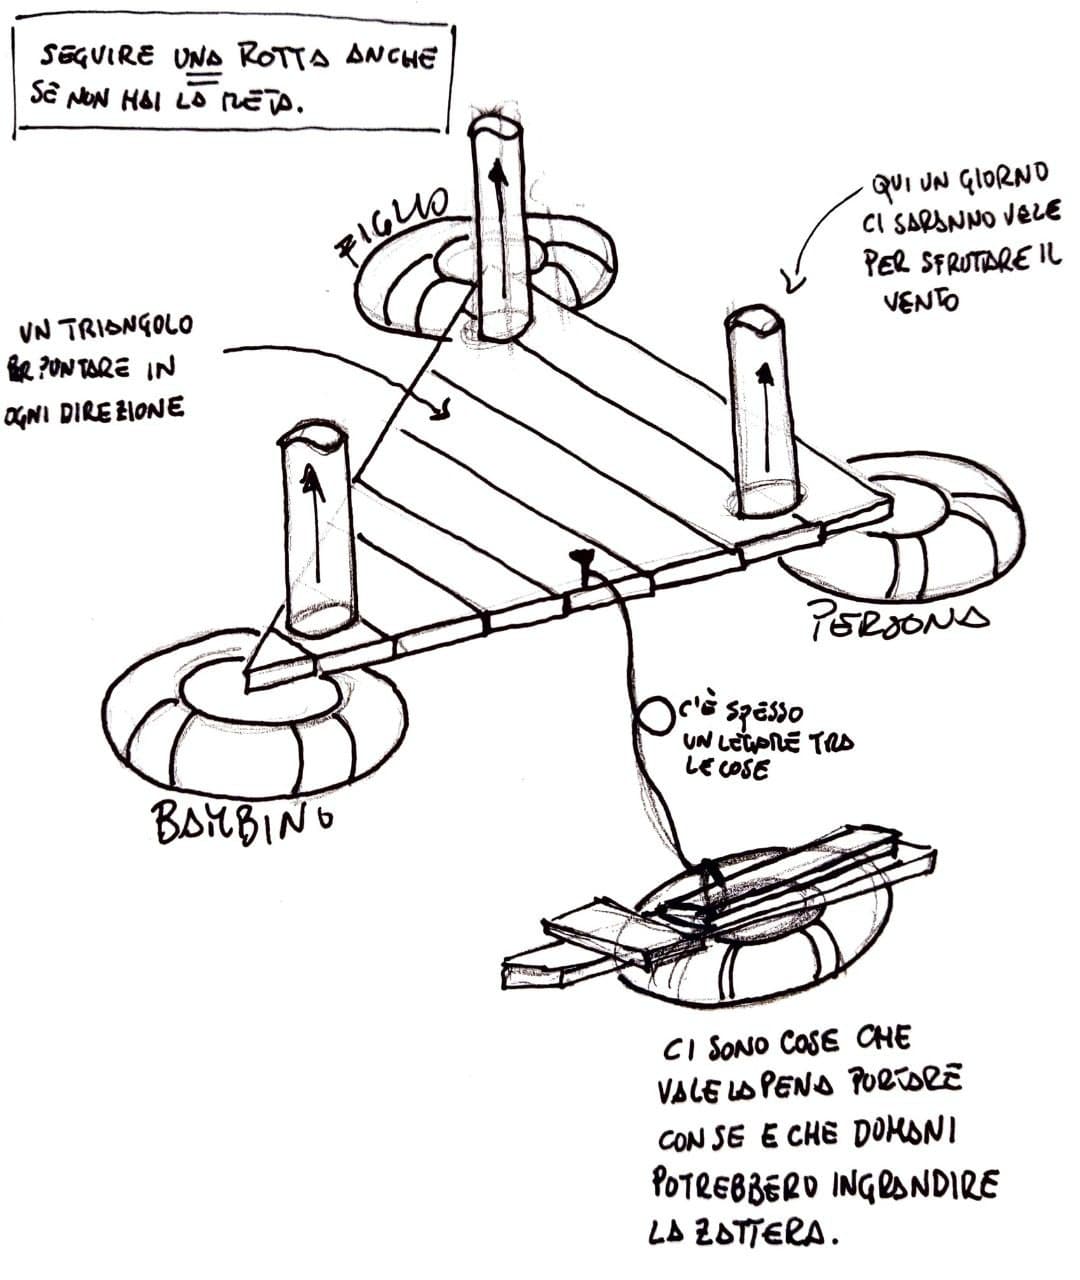 SEGUIRE UNA ROTTA ANCHE
SE NON HAI LA META.
FIGLIO
QUI UN GIORNO
CI SARANNO VELE
PER SFRUTARE IL
VENTO
UN TRIANGOLO
PER PUNTARE IN
OGNI DIREZIONE
PERSONA
C'È SPESSO
UN LEGAME TRA
LE COSE
BAMBINO
CI SONO COSE CHE
VALE LA PENA PORTARE
CON SE E CHE DOMANI
POTREBBERO INGRANDIRE
LA ZATTERA.